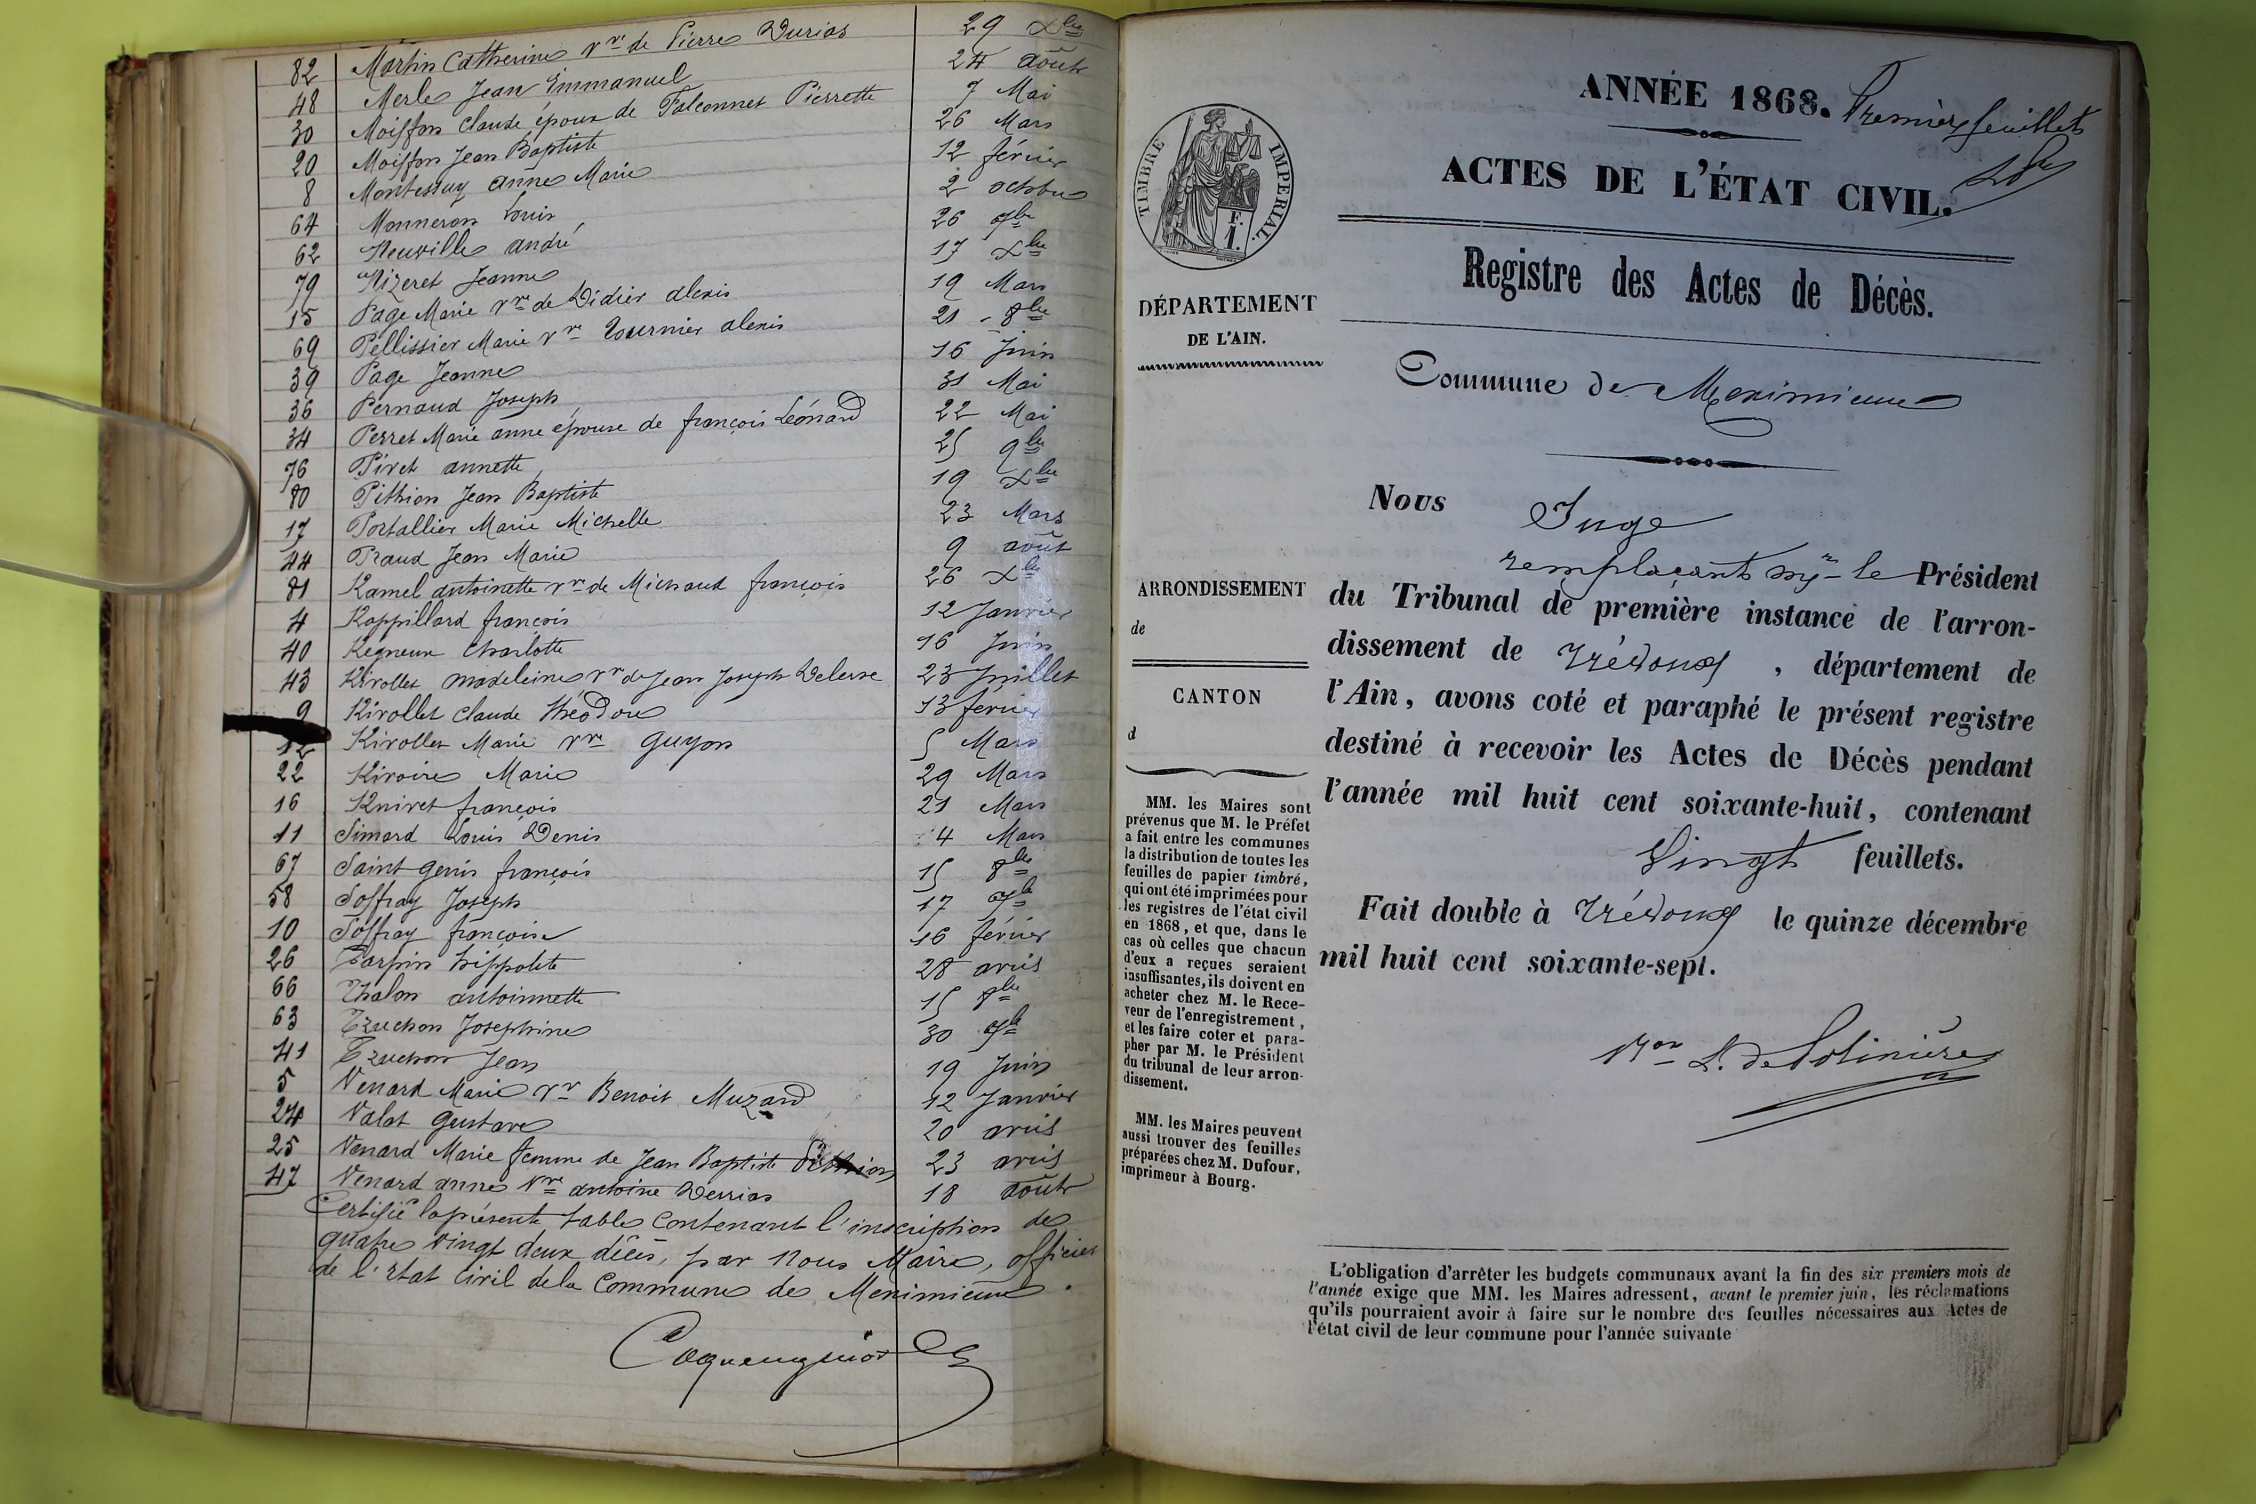 82 Martin Catherine vve de Pierre Durias 29 Xbre
48 Merle Jean Emmanuel 24 août
30 Moiffon Claude époux de Falconnet Pierrette 7 Mai
20 Moiffon Jean Baptiste 26 Mars
8 Montessuy anne Marie 12 février
64 Monneron Louis 2 octobre
62 Neuville andré 26 7bre
79 Nizeret Jeanne 17 Xbre
15 Page Marie vve de Didier alexis 19 Mars
69 Pellissier Marie vve Tournier alexis 21 8bre
39 Page Jeanne 16 Juin
36 Pernaud Joseph 31 Mai
34 Perret Marie anne épouse de françois Léonard 22 Mai
76 Piret annette 25 9bre
80 Pithion Jean Baptiste 19 Xbre
17 Portallier Marie Michelle 23 Mars
44 Praud Jean Marie 9 août
81 Ramel antoinette vve de Michaud françois 26 Xbre
4 Rappillard françois 12 Janvier
40 Regneux Charlotte 16 Juin
43 Rivollet madeleine vve de Jean Joseph 23 Juillet
9 Rivollet Claude théodore 13 février
12 Rivollet Marie vve Guyon 5 Mars
22 Rivoire Marie 29 Mars
16 françois 21 Mars
11 Simard Louis Denis 4 Mars
67 Saint genis françois 15 8bre
58 Soffray Joseph 17 7bre
10 Soffray françoise 16 février
26 Tarpin hippolite 28 avril
66 Thalon antoinnette 15 8bre
63 Truchon Josephine 30 7bre
41 Truchon Jean 19 Juin
5 Venard Marie vve Benoit Muzard 12 Janvier
24 Valat Gustave 20 avril
25 Venard Marie femme de Jean Baptiste Pithion 23 avril
47 Venard anne Vve antoine Derrias 18 août
Certifié la présente table contenant l'inscription de
quatre vingt deux décès, par nous Maire, officier
de l'Etat civil de la Commune de Meximieux.
ANNÉE 1868. Premier feuillet
ACTES DE L'ÉTAT CIVIL.
TIMBRE IMPÉRIAL.
F.
1.
Registre des Actes de Décès.
DÉPARTEMENT
DE L'AIN.
Commune de Meximieux
Nous Juge
remplaçant Mr le Président
du Tribunal de première instance de l'arron-
dissement de Trévoux, département de
l'Ain, avons coté et paraphé le présent registre
destiné à recevoir les Actes de Décès pendant
l'année mil huit cent soixante-huit, contenant
Vingt feuillets.
Fait double à Trévoux le quinze décembre
mil huit cent soixante-sept.
ARRONDISSEMENT
de
CANTON
d
MM. les Maires sont
prévenus que M. le Préfet
a fait entre les communes
la distribution de toutes les
feuilles de papier timbré,
qui ont été imprimées pour
les registres de l'état civil
en 1868, et que, dans le
cas où celles que chacun
d'eux a reçues seraient
insuffisantes, ils doivent en
acheter chez M. le Rece-
veur de l'enregistrement,
et les faire coter et para-
pher par M. le Président
du tribunal de leur arron-
dissement.
MM. les Maires peuvent
aussi trouver des feuilles
préparées chez M. Dufour,
imprimeur à Bourg.
L'obligation d'arrêter les budgets communaux avant la fin des six premiers mois de
l'année exige que MM. les Maires adressent, avant le premier juin, les réclamations
qu'ils pourraient avoir à faire sur le nombre des feuilles nécessaires aux Actes de
l'état civil de leur commune pour l'année suivante